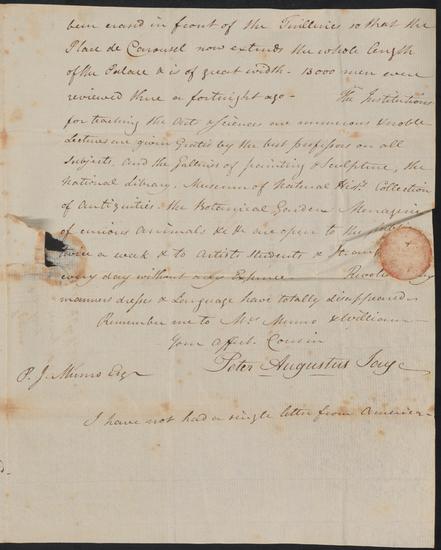 been erased in front of the Tuilleries so that the
Place de Carousel now extends the whole length
of the Palace & is of great width. 13000 men were
reviewed there a fortnight ago – The Institutions
for teaching the Arts & Sciences are numerous & noble
Lectures are given Gratis by the best professors on all
Subjects, and the Galleries of painting & Sculpture, the
National Library, Museum of Natural Hist. Collection
of Antiquities the Botanical Garden Menagerie
of curious Animals &c &c are open to the
twice a week & to Artists Students &
every day without any Expence
manners dresses & Language have totally disappeared
Remember me to Mrs Munro & William
Your affect. Cousin
Peter Augustus Jay
P. J. Munro Esqr
I have not had a single letter from America